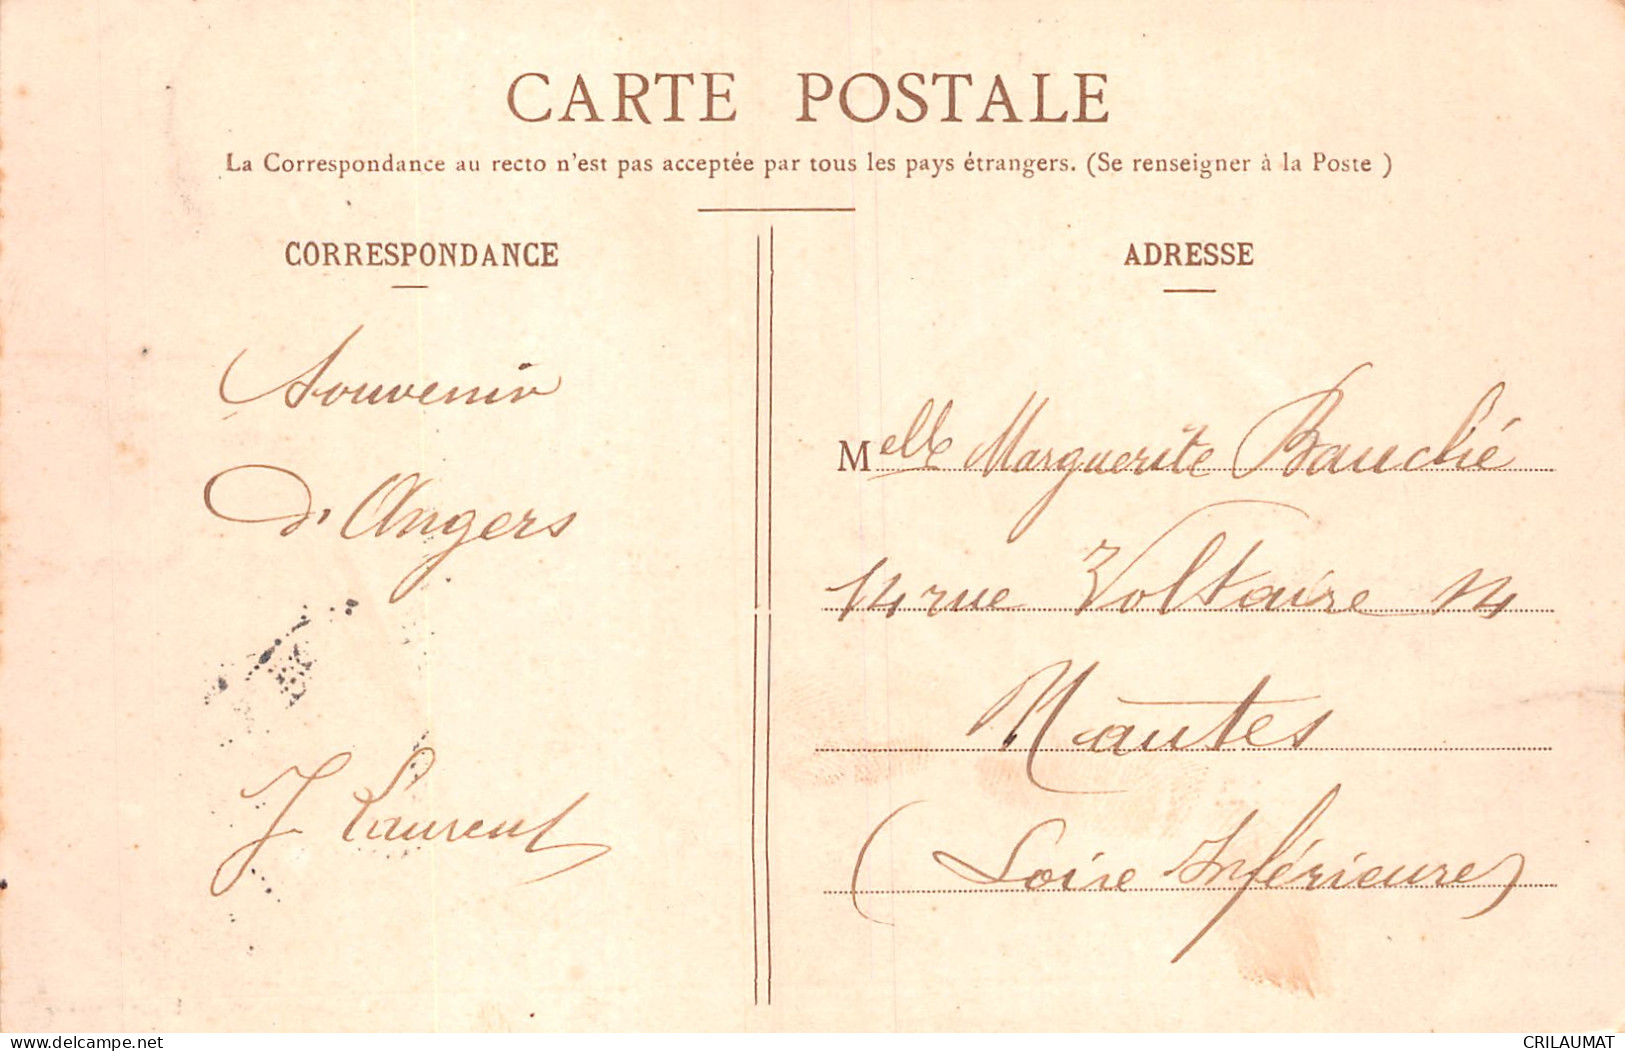 CARTE POSTALE
La Correspondance au recto n'est pas acceptée par tous les pays étrangers. (Se renseigner à la Poste )
CORRESPONDANCE
Souvenir
d'Angers
J Laurent
ADRESSE
Melle Marguerite Bauché
14 rue Voltaire 14
Nantes
(Loire Inférieure)
www.delcampe.net
CRILAUMAT